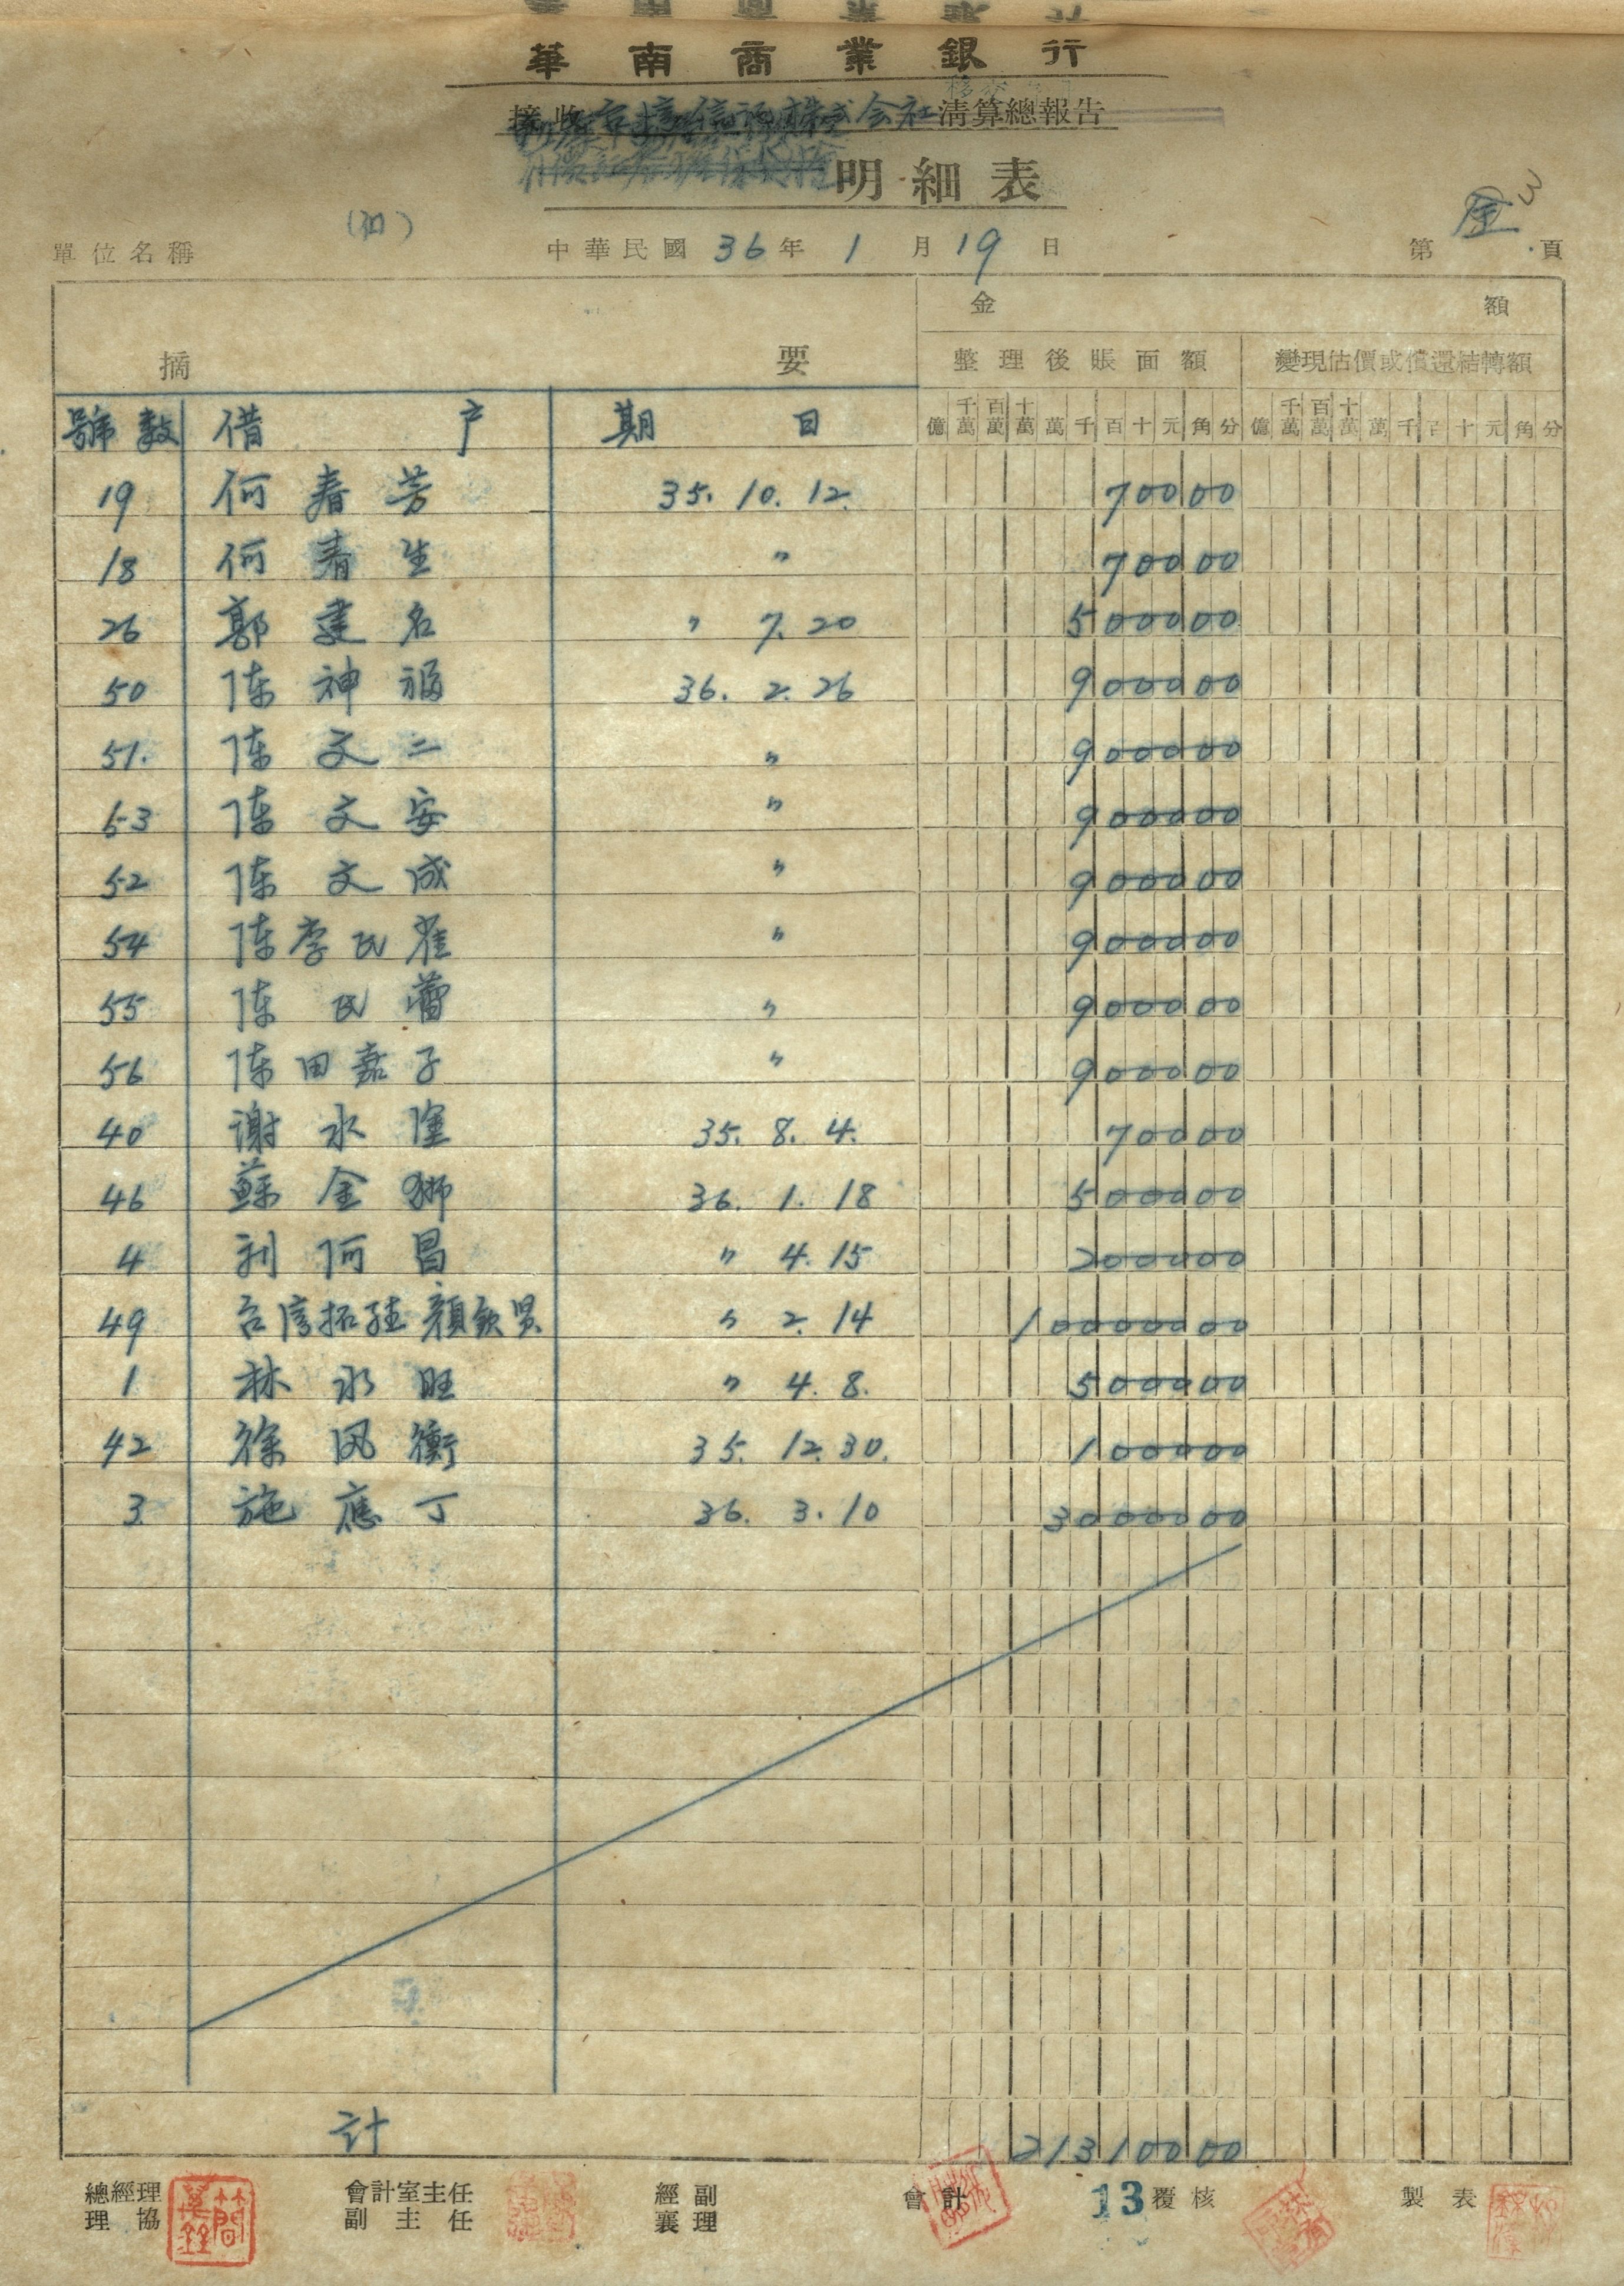 華南商業銀行
接收台灣信託株式会社清算總報告
明細表
單位名稱 中華民國36年1月19日 第 頁
金額
摘要 整理後賬面額 變現估價或償還結轉額
號數 借户 期日 億 千萬 百萬 十萬 萬 千 百 十 元 角 分 億 千萬 百萬 十萬 萬 千 百 十 元 角 分
19 何春芳 35. 10. 12. 70000
18 何春生 〃 70000
26 郭建名 〃 7. 20 500000
50 陈神福 36. 2. 26 900000
51. 陈文二 〃 900000
53 陈文安 〃 900000
52 陈文成 〃 900000
54 陈李氏雀 〃 900000
55 陈氏蕾 〃 900000
56 陈田嘉子 〃 900000
40 谢水隆 35. 8. 4. 70000
46 蘇金獅 36. 1. 18 500000
4 利阿昌 〃 4. 15 200000
49 台湾拓殖 顏欽賢 〃 2. 14 10000000
1 林水旺 〃 4. 8. 500000
42 徐风衡 35. 12. 30. 100000
3 施應丁 36. 3. 10 3000000
計 21310000
總經理 會計室主任 經副 會計 13 覆核 製表
理協 副主任 襄理